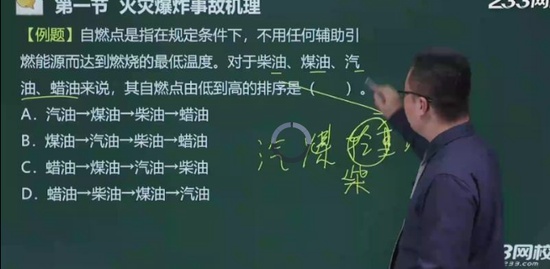 第一节 火灾爆炸事故机理
233网校
【例题】自燃点是指在规定条件下，不用任何辅助引
燃能源而达到燃烧的最低温度。对于柴油、煤油、汽
油、蜡油来说，其自燃点由低到高的排序是（ ）。
A．汽油→煤油→柴油→蜡油
B．煤油→汽油→柴油→蜡油
C．蜡油→煤油→汽油→柴油
D．蜡油→柴油→煤油→汽油
汽 煤
柴
3网校
233.com